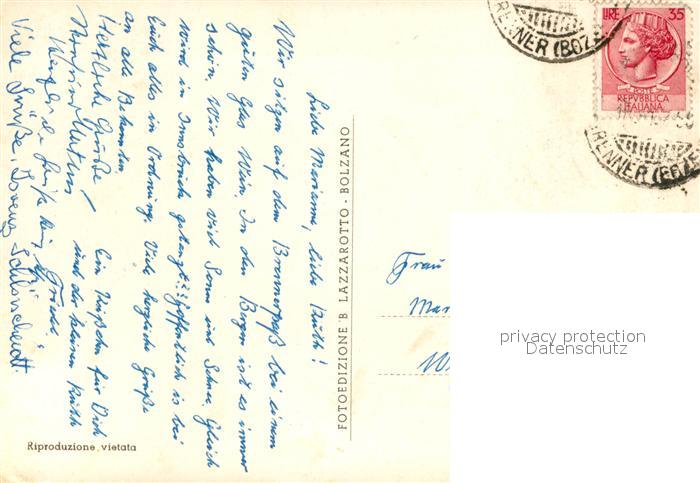 Liebe Marianne, liebe Ruth!
Wir sitzen auf dem Brennerpaß bei einem
guten Glas Wein. In den Bergen ist es immer
schön. Wir haben viel Sonne und Schnee. Gleich
wird in Innsbruck getankt. Hoffentlich ist bei
Euch alles in Ordnung. Viele herzliche Grüße
an alle Bekannten
Herzliche Grüße
Ein Küßchen für Dich
und der kleinen Ruth
Viele Grüße,
FOTOEDIZIONE B. LAZZAROTTO - BOLZANO
Riproduzione vietata
LIRE 35
POSTE
REPVBBLICA
ITALIANA
BRENNER (BOZ
BRENNER (BOZ
Frau
Mar
W
privacy protection
Datenschutz